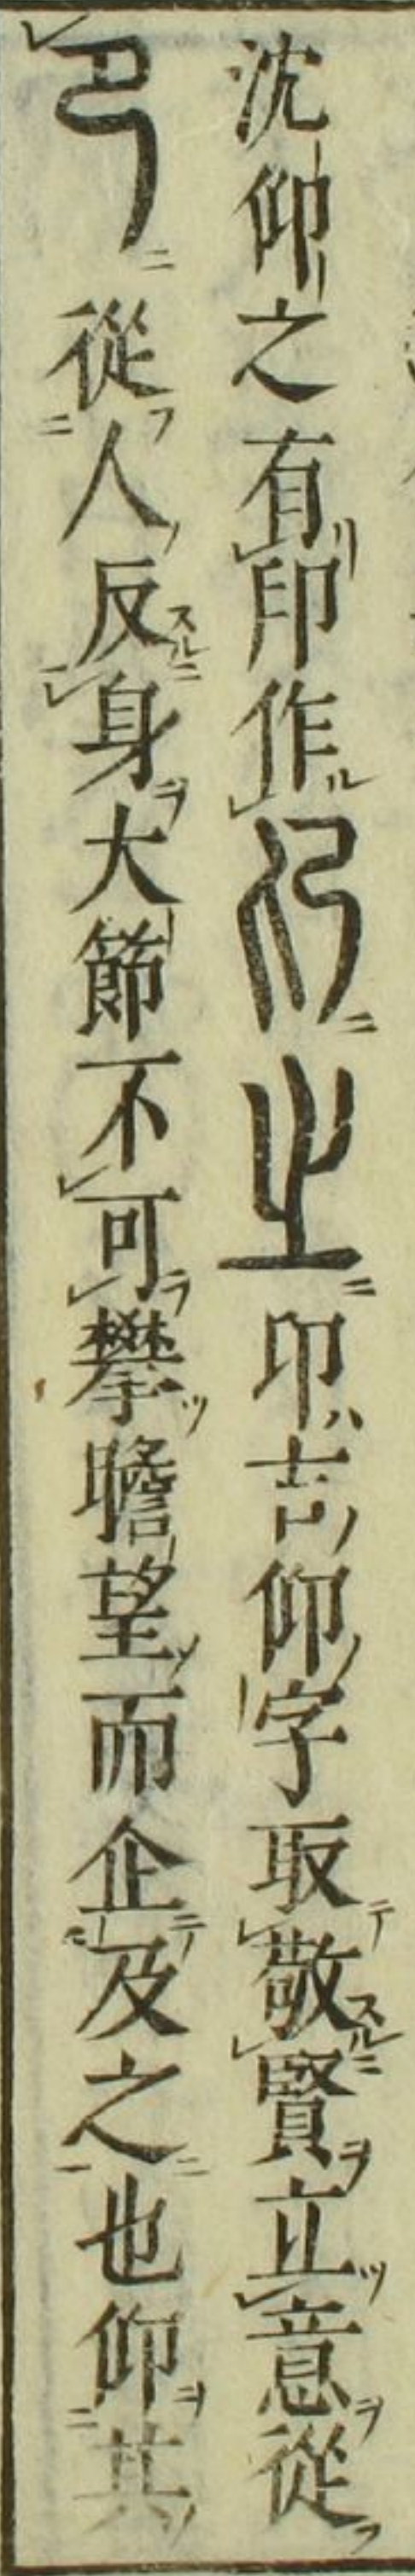 沈仰之有印作卬之卬古仰字取敬賢立意從
卪從人反身大節不可攀瞻望而企及之也仰其